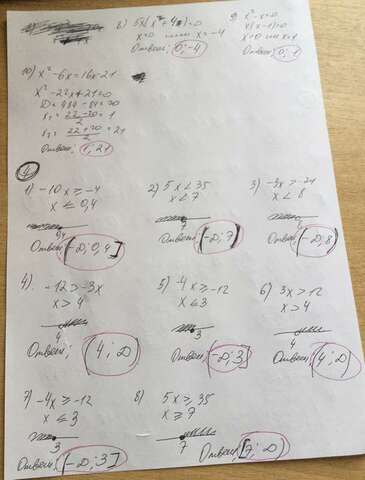 8) 5x(x²+4)=0
x=0 или x=-4
Ответ: 0; -4
9) x²-x=0
x(x-1)=0
x=0 или x=1
Ответ: 0; 1
10) x²-6x=16x-21
x²-22x+21=0
D=484-84=20
x₁=22-20/2=1
x₂=22+20/2=21
Ответ: 1; 21
4
1) -10x≥-4
x≤0,4
0,4
Ответ: (-∞; 0,4]
2) 5x<35
x<7
7
Ответ: (-∞; 7)
3) -3x>-24
x<8
Ответ: (-∞; 8)
4) -12>-3x
x>4
4
Ответ: (4; ∞)
5) -4x≥-12
x≤3
3
Ответ: (-∞; 3]
6) 3x>12
x>4
4
Ответ: (4; ∞)
7) -4x≥-12
x≤3
3
Ответ: (-∞; 3]
8) 5x≥35
x≥7
7
Ответ: [7; ∞)